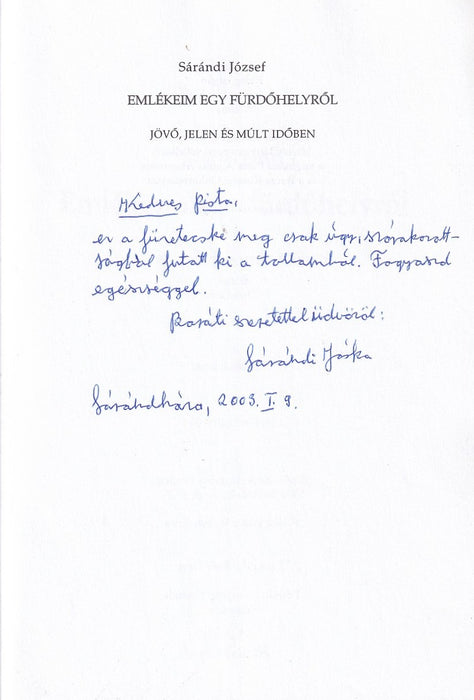 Sárándi József
EMLÉKEIM EGY FÜRDŐHELYRŐL
JÖVŐ, JELEN ÉS MÚLT IDŐBEN
Kedves Pista,
ez a füzetecske meg csak úgy, szórakozott-
ságból futott ki a tollamból. Fogyaszd
egészséggel.
Baráti szeretettel üdvözöl:
Sárándi Jóska
Sárándháza, 2003. I. 9.